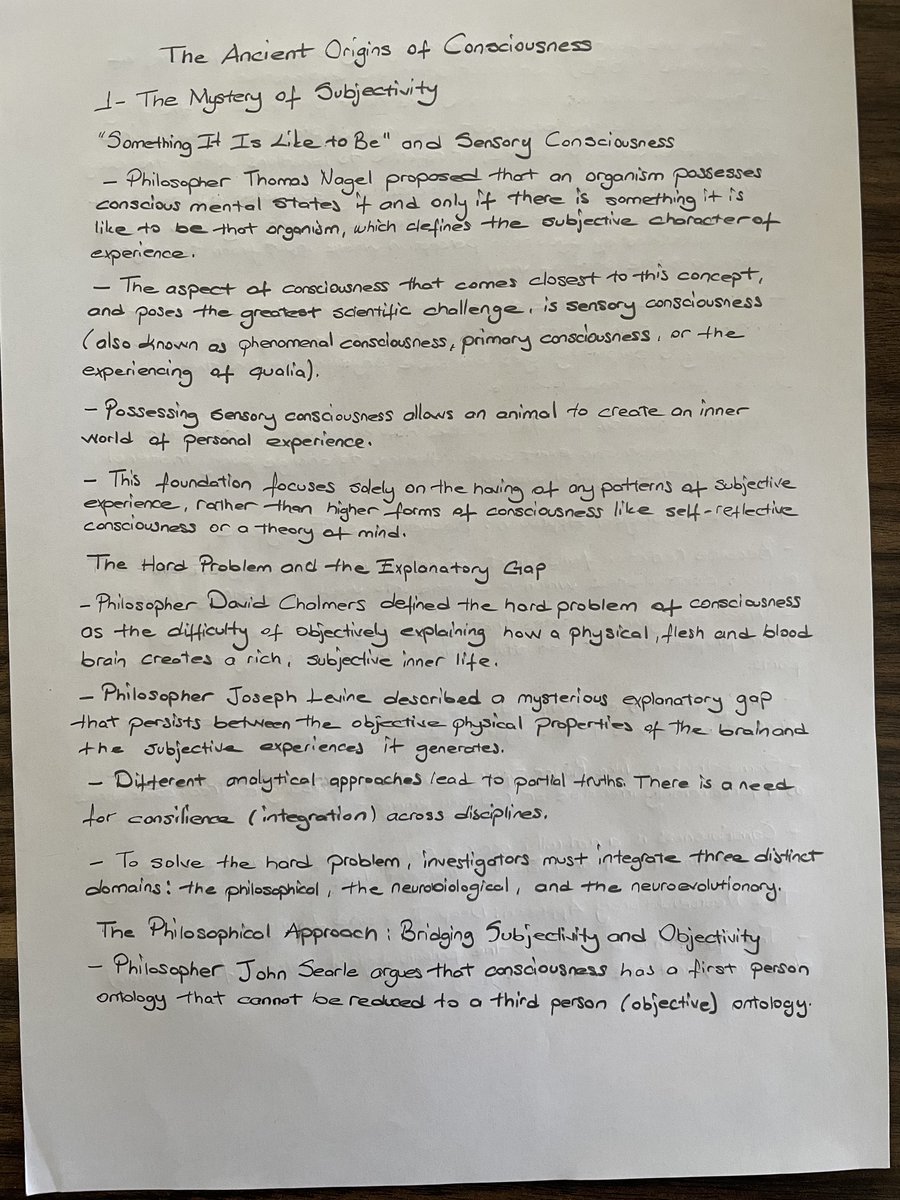 The Ancient Origins of Consciousness
1- The Mystery of Subjectivity
"Something It Is Like to Be" and Sensory Consciousness
- Philosopher Thomas Nagel proposed that an organism possesses
conscious mental states if and only if there is something it is
like to be that organism, which defines the subjective character of
experience.
- The aspect of consciousness that comes closest to this concept,
and poses the greatest scientific challenge, is sensory consciousness
(also known as phenomenal consciousness, primary consciousness, or the
experiencing of qualia).
- Possessing sensory consciousness allows an animal to create an inner
world of personal experience.
- This foundation focuses solely on the having of any patterns of subjective
experience, rather than higher forms of consciousness like self-reflective
consciousness or a theory of mind.
The Hard Problem and the Explanatory Gap
- Philosopher David Chalmers defined the hard problem of consciousness
as the difficulty of objectively explaining how a physical, flesh and blood
brain creates a rich, subjective inner life.
- Philosopher Joseph Levine described a mysterious explanatory gap
that persists between the objective physical properties of the brain and
the subjective experiences it generates.
- Different analytical approaches lead to partial truths. There is a need
for consilience (integration) across disciplines.
- To solve the hard problem, investigators must integrate three distinct
domains: the philosophical, the neurobiological, and the neuroevolutionary.
The Philosophical Approach: Bridging Subjectivity and Objectivity
- Philosopher John Searle argues that consciousness has a first person
ontology that cannot be reduced to a third person (objective) ontology.